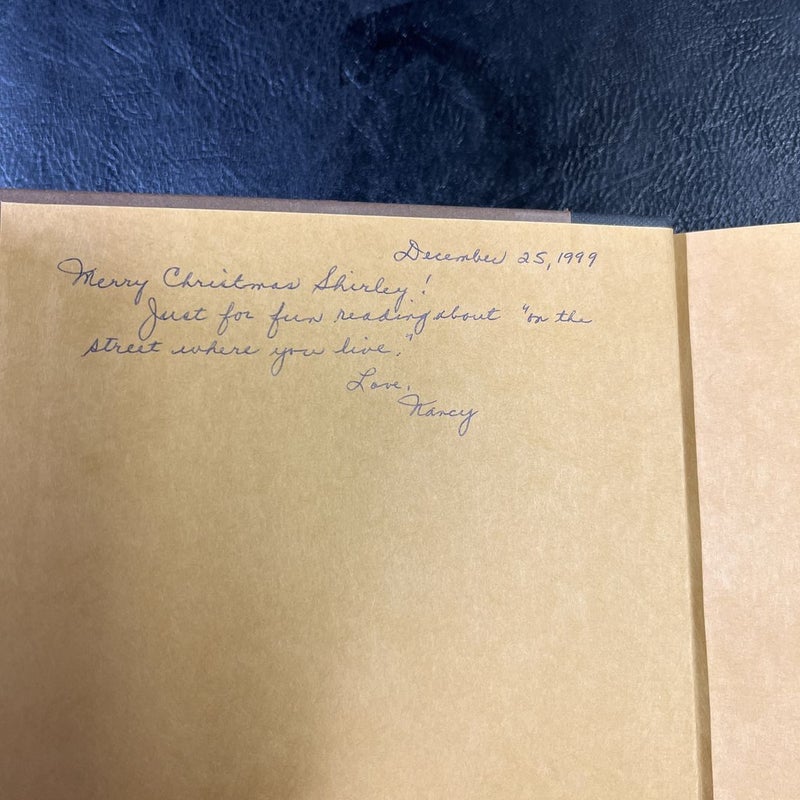 December 25, 1999
Merry Christmas Shirley!
Just for fun reading about "on the
street where you live."
Love,
Nancy